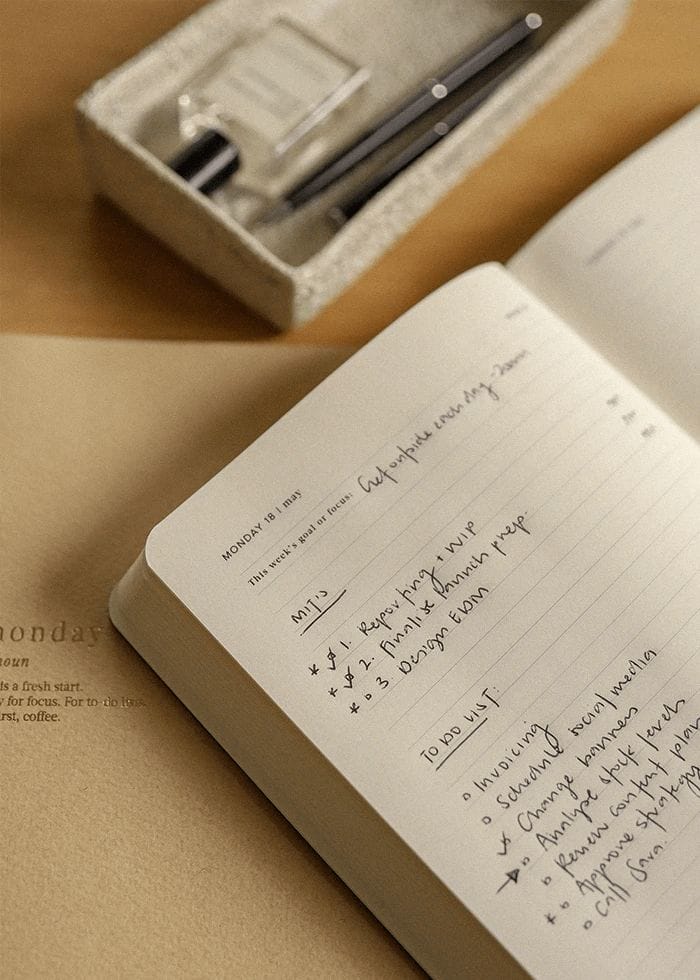 MONDAY 18 | may
This week's goal or focus: Get outside each day - 20min
MIT'S
* 1. Reporting + WIP
* 2. Finalise launch prep.
* 3. Design EDM
TO DO LIST:
Invoicing
Schedule social media
Change banners
Analyse stock levels
Review content plan
* Approve strategy
Call Sara.
monday
noun
is a fresh start.
for focus. For to-do lists.
first, coffee.